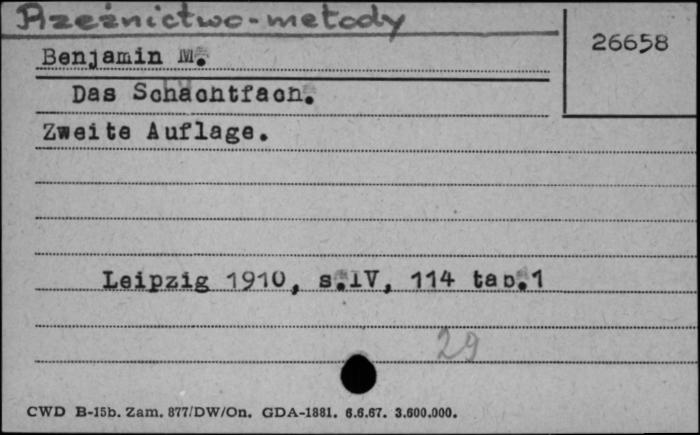 Rzeźnictwo-metody
26658
Benjamin M.
Das Schächtfach.
Zweite Auflage.
Leipzig 1910, s.IV, 114 tab.1
29
CWD B-15b. Zam. 877/DW/On. GDA-1881. 6.6.67. 3.600.000.